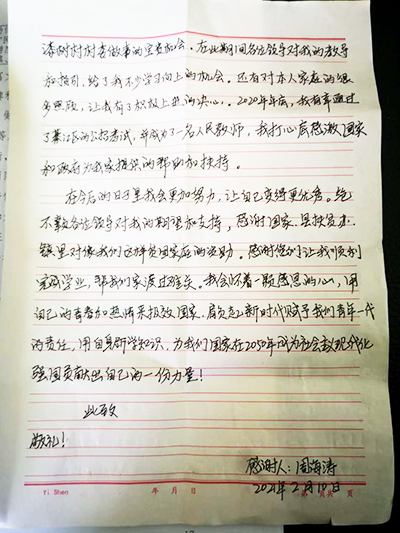 漆树村村委做事的宝贵机会。在此期间各位领导对我的教导
和指引,给了我不少学习向上的机会。还有对本人家庭的很
多照顾,让我有了积极上进的决心。2020年年底,我有幸通过
了綦江区的公招考试,并成为了一名人民教师,我打心底感激国家
和政府为我家提供的帮助和扶持。
在今后的日子里我会更加努力,让自己变得更优秀。绝
不辜负各位领导对我的期望和支持,感谢国家、县扶贫办、
镇里对像我们这样贫困家庭的资助。感谢您们让我顺利
完成学业,帮我们家渡过难关。我会怀着一颗感恩的心,用
自己的青春加热情来报效国家。肩负起新时代赋予我们青年一代
的责任,用自身所学知识,为我们国家在2050年成为社会主义现代化
强国贡献出自己的一份力量!
此致
敬礼!
感谢人:周海涛
2021年2月10日
Yi Shen 年 月 日 第 页共 页